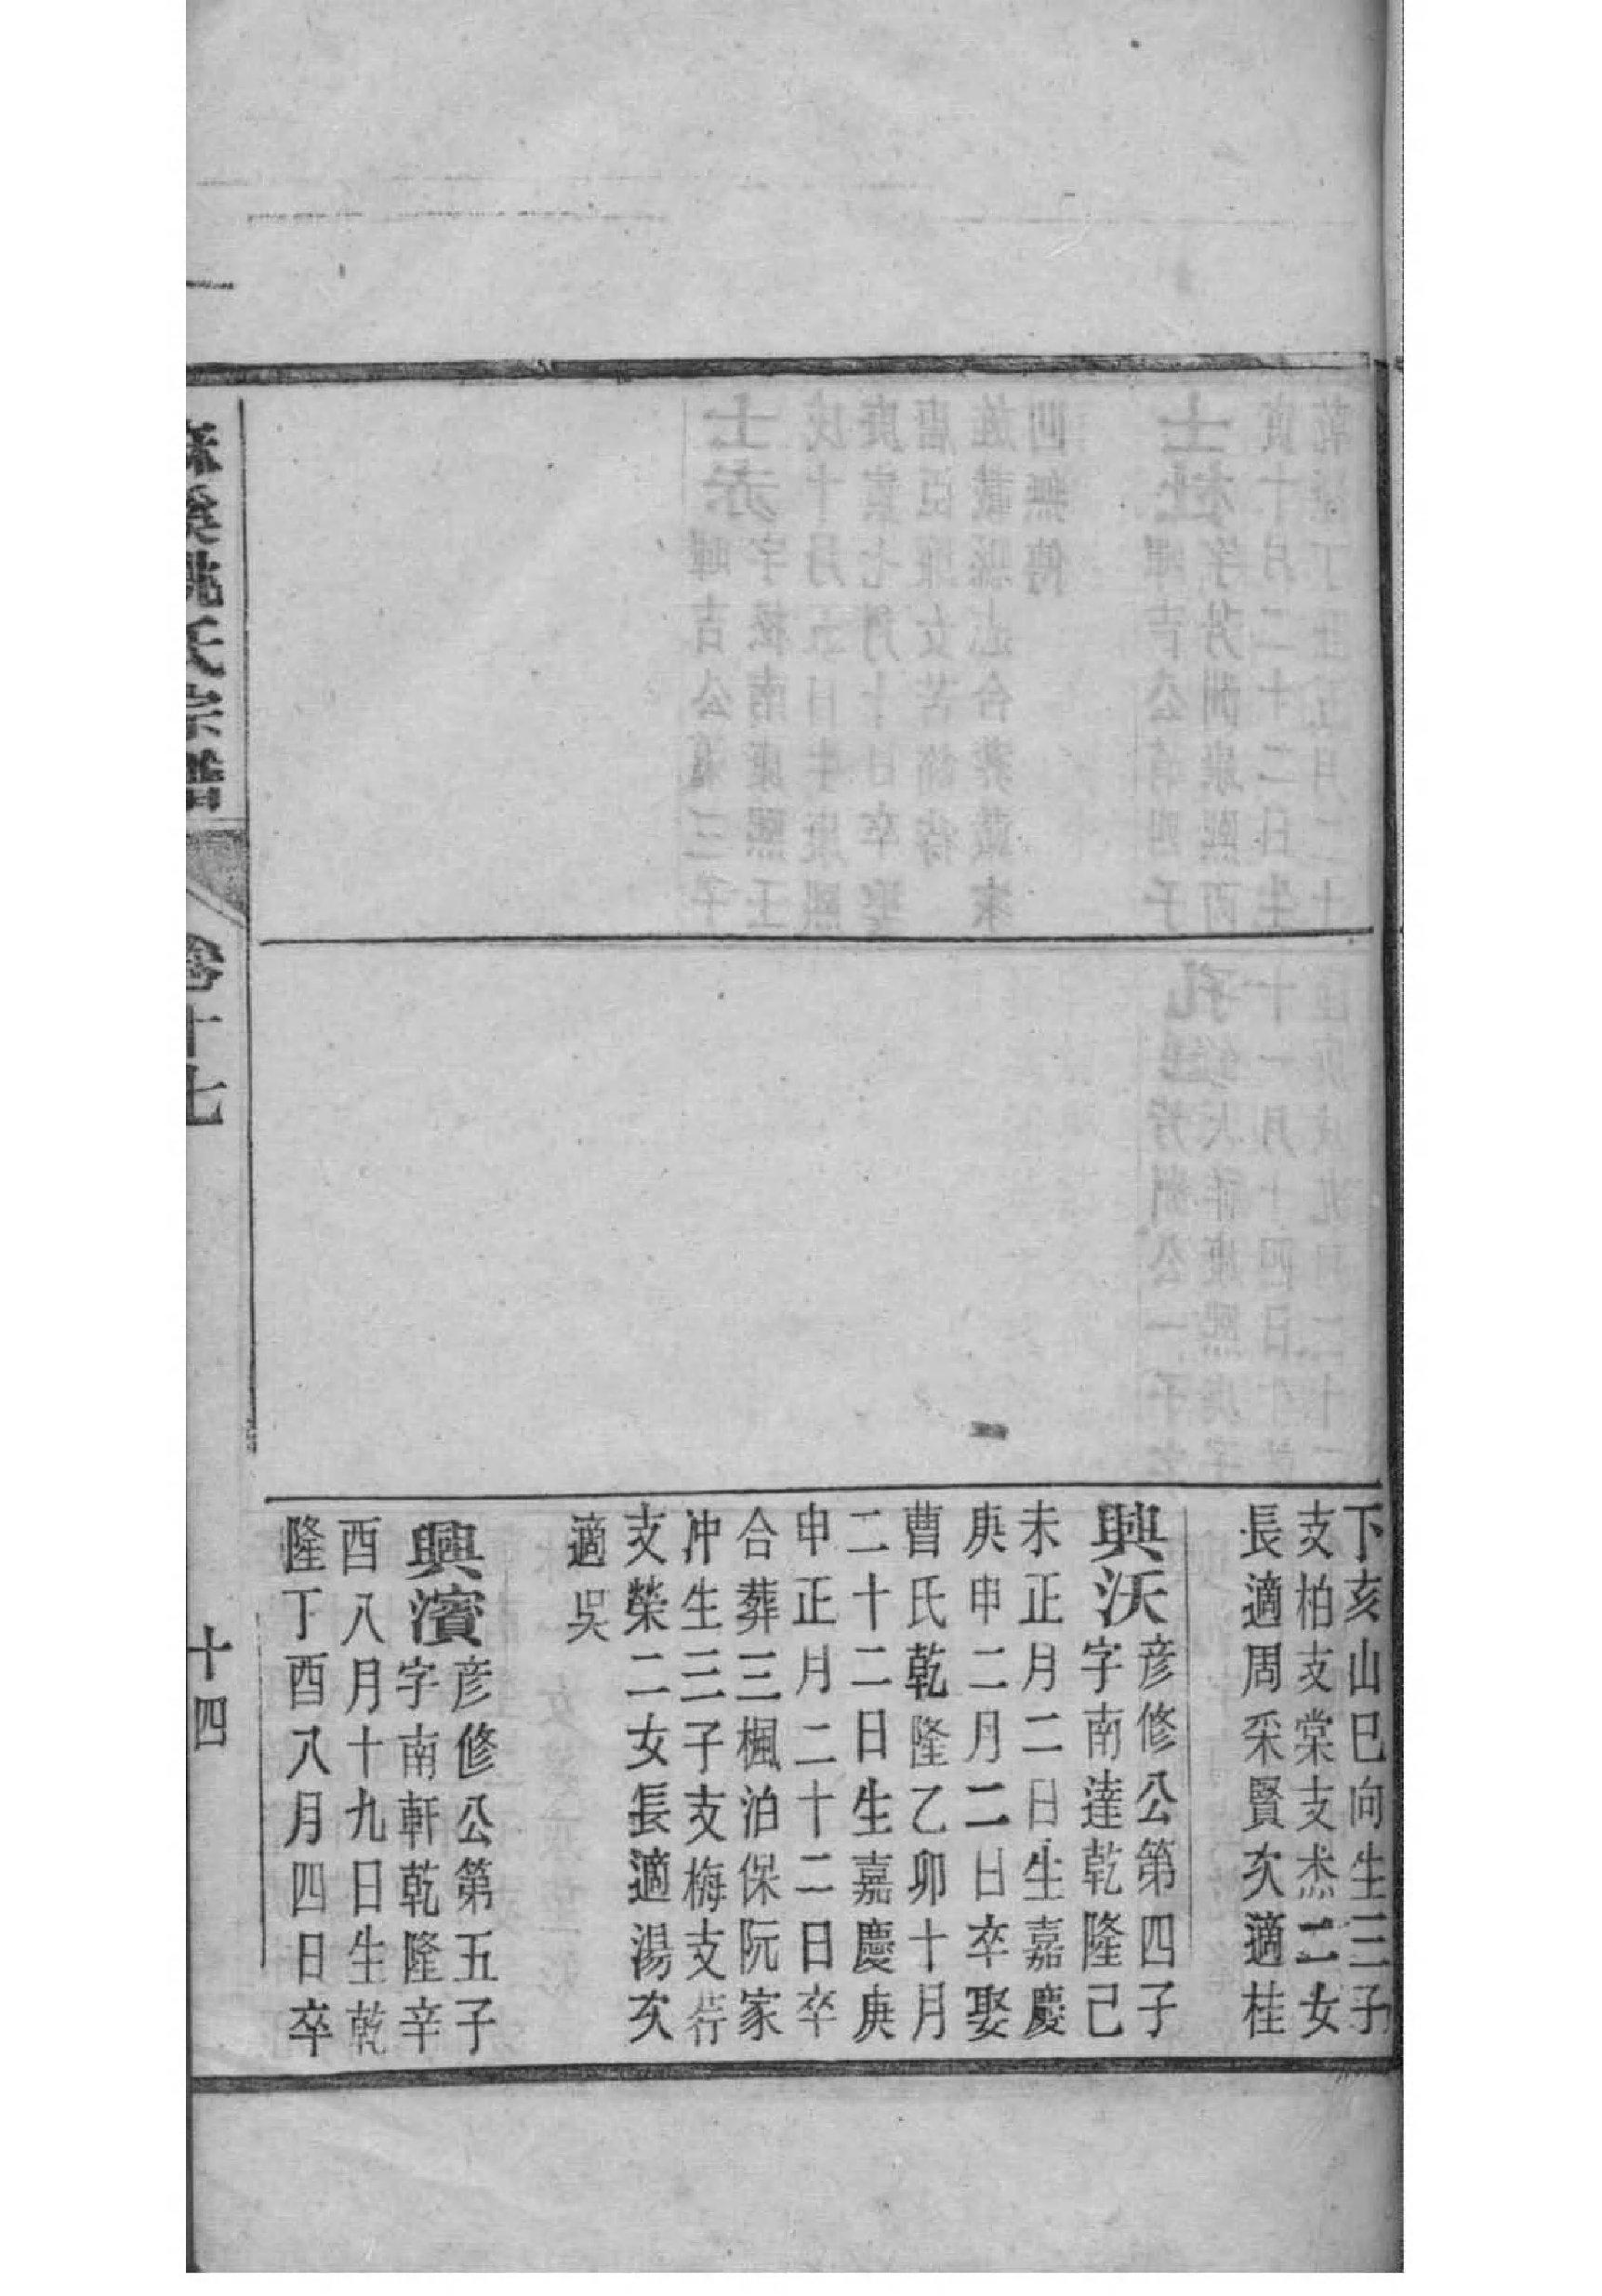 下亥山巳向生三子
支柏支棠支杰二女
長適周采賢次適桂
興沃彥修公第四子
字南達乾隆己
未正月二日生嘉慶
庚申二月二日卒娶
曹氏乾隆乙卯十月
二十二日生嘉慶庚
申正月二十二日卒
合葬三楓泊保阮家
冲生三子支梅支荇
支榮二女長適湯次
適吳
興濱彥修公第五子
字南軒乾隆辛
酉八月十九日生乾
隆丁酉八月四日卒
麻溪姚氏宗譜
卷十七
十四